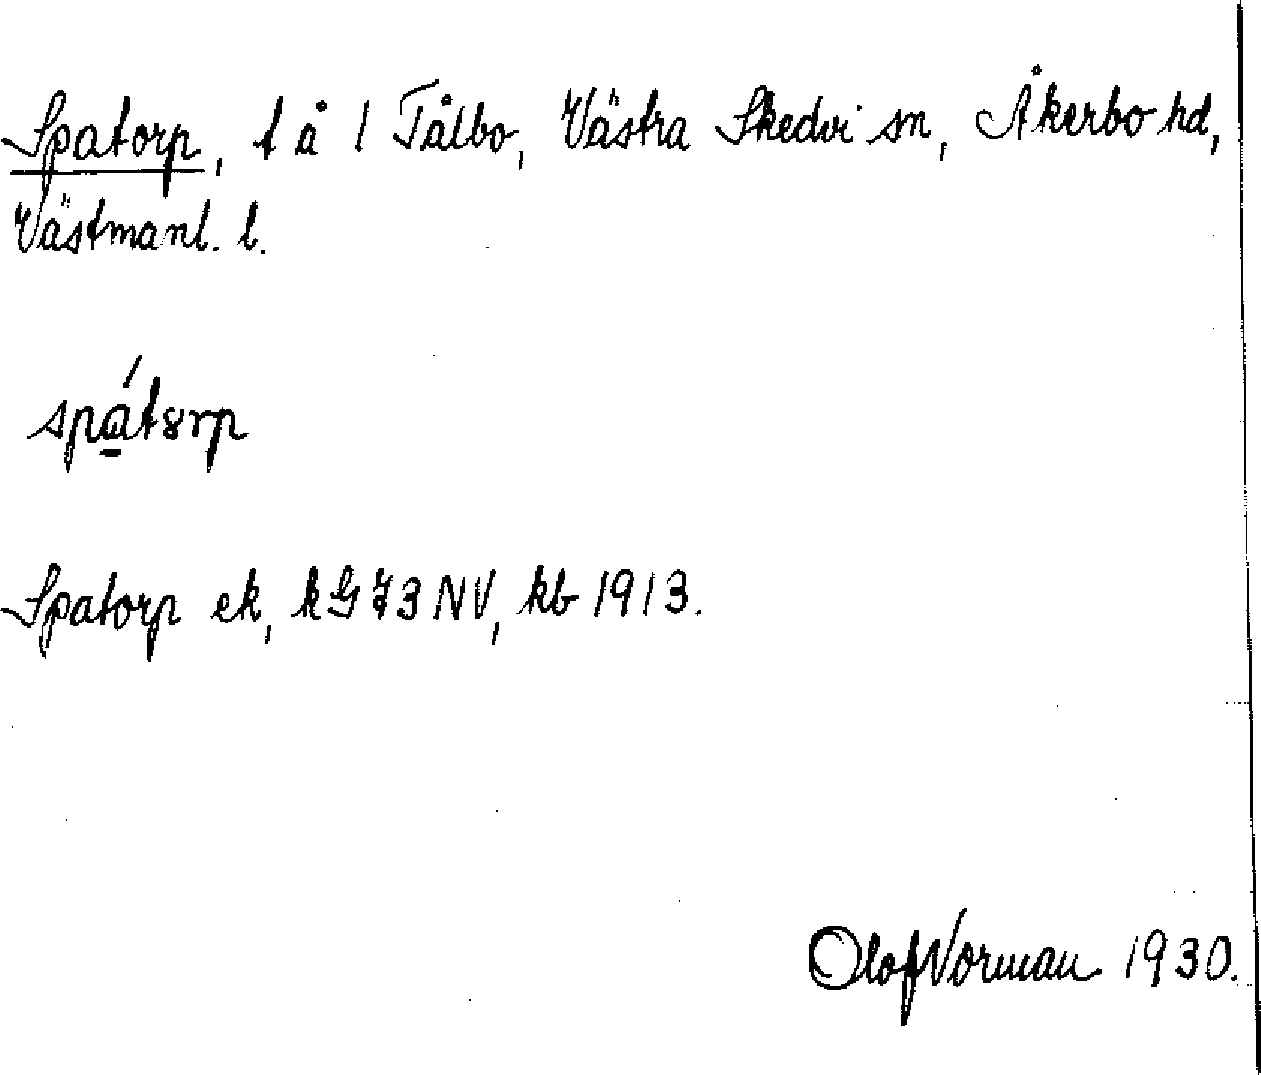 Spatorp, t å 1 Tålbo, Västra Skedvi sn, Åkerbo hd,
Västmanl. l.
spá̱t8rp
Spatorp ek, kG73NV, kb 1913.
Olof Norman 1930.